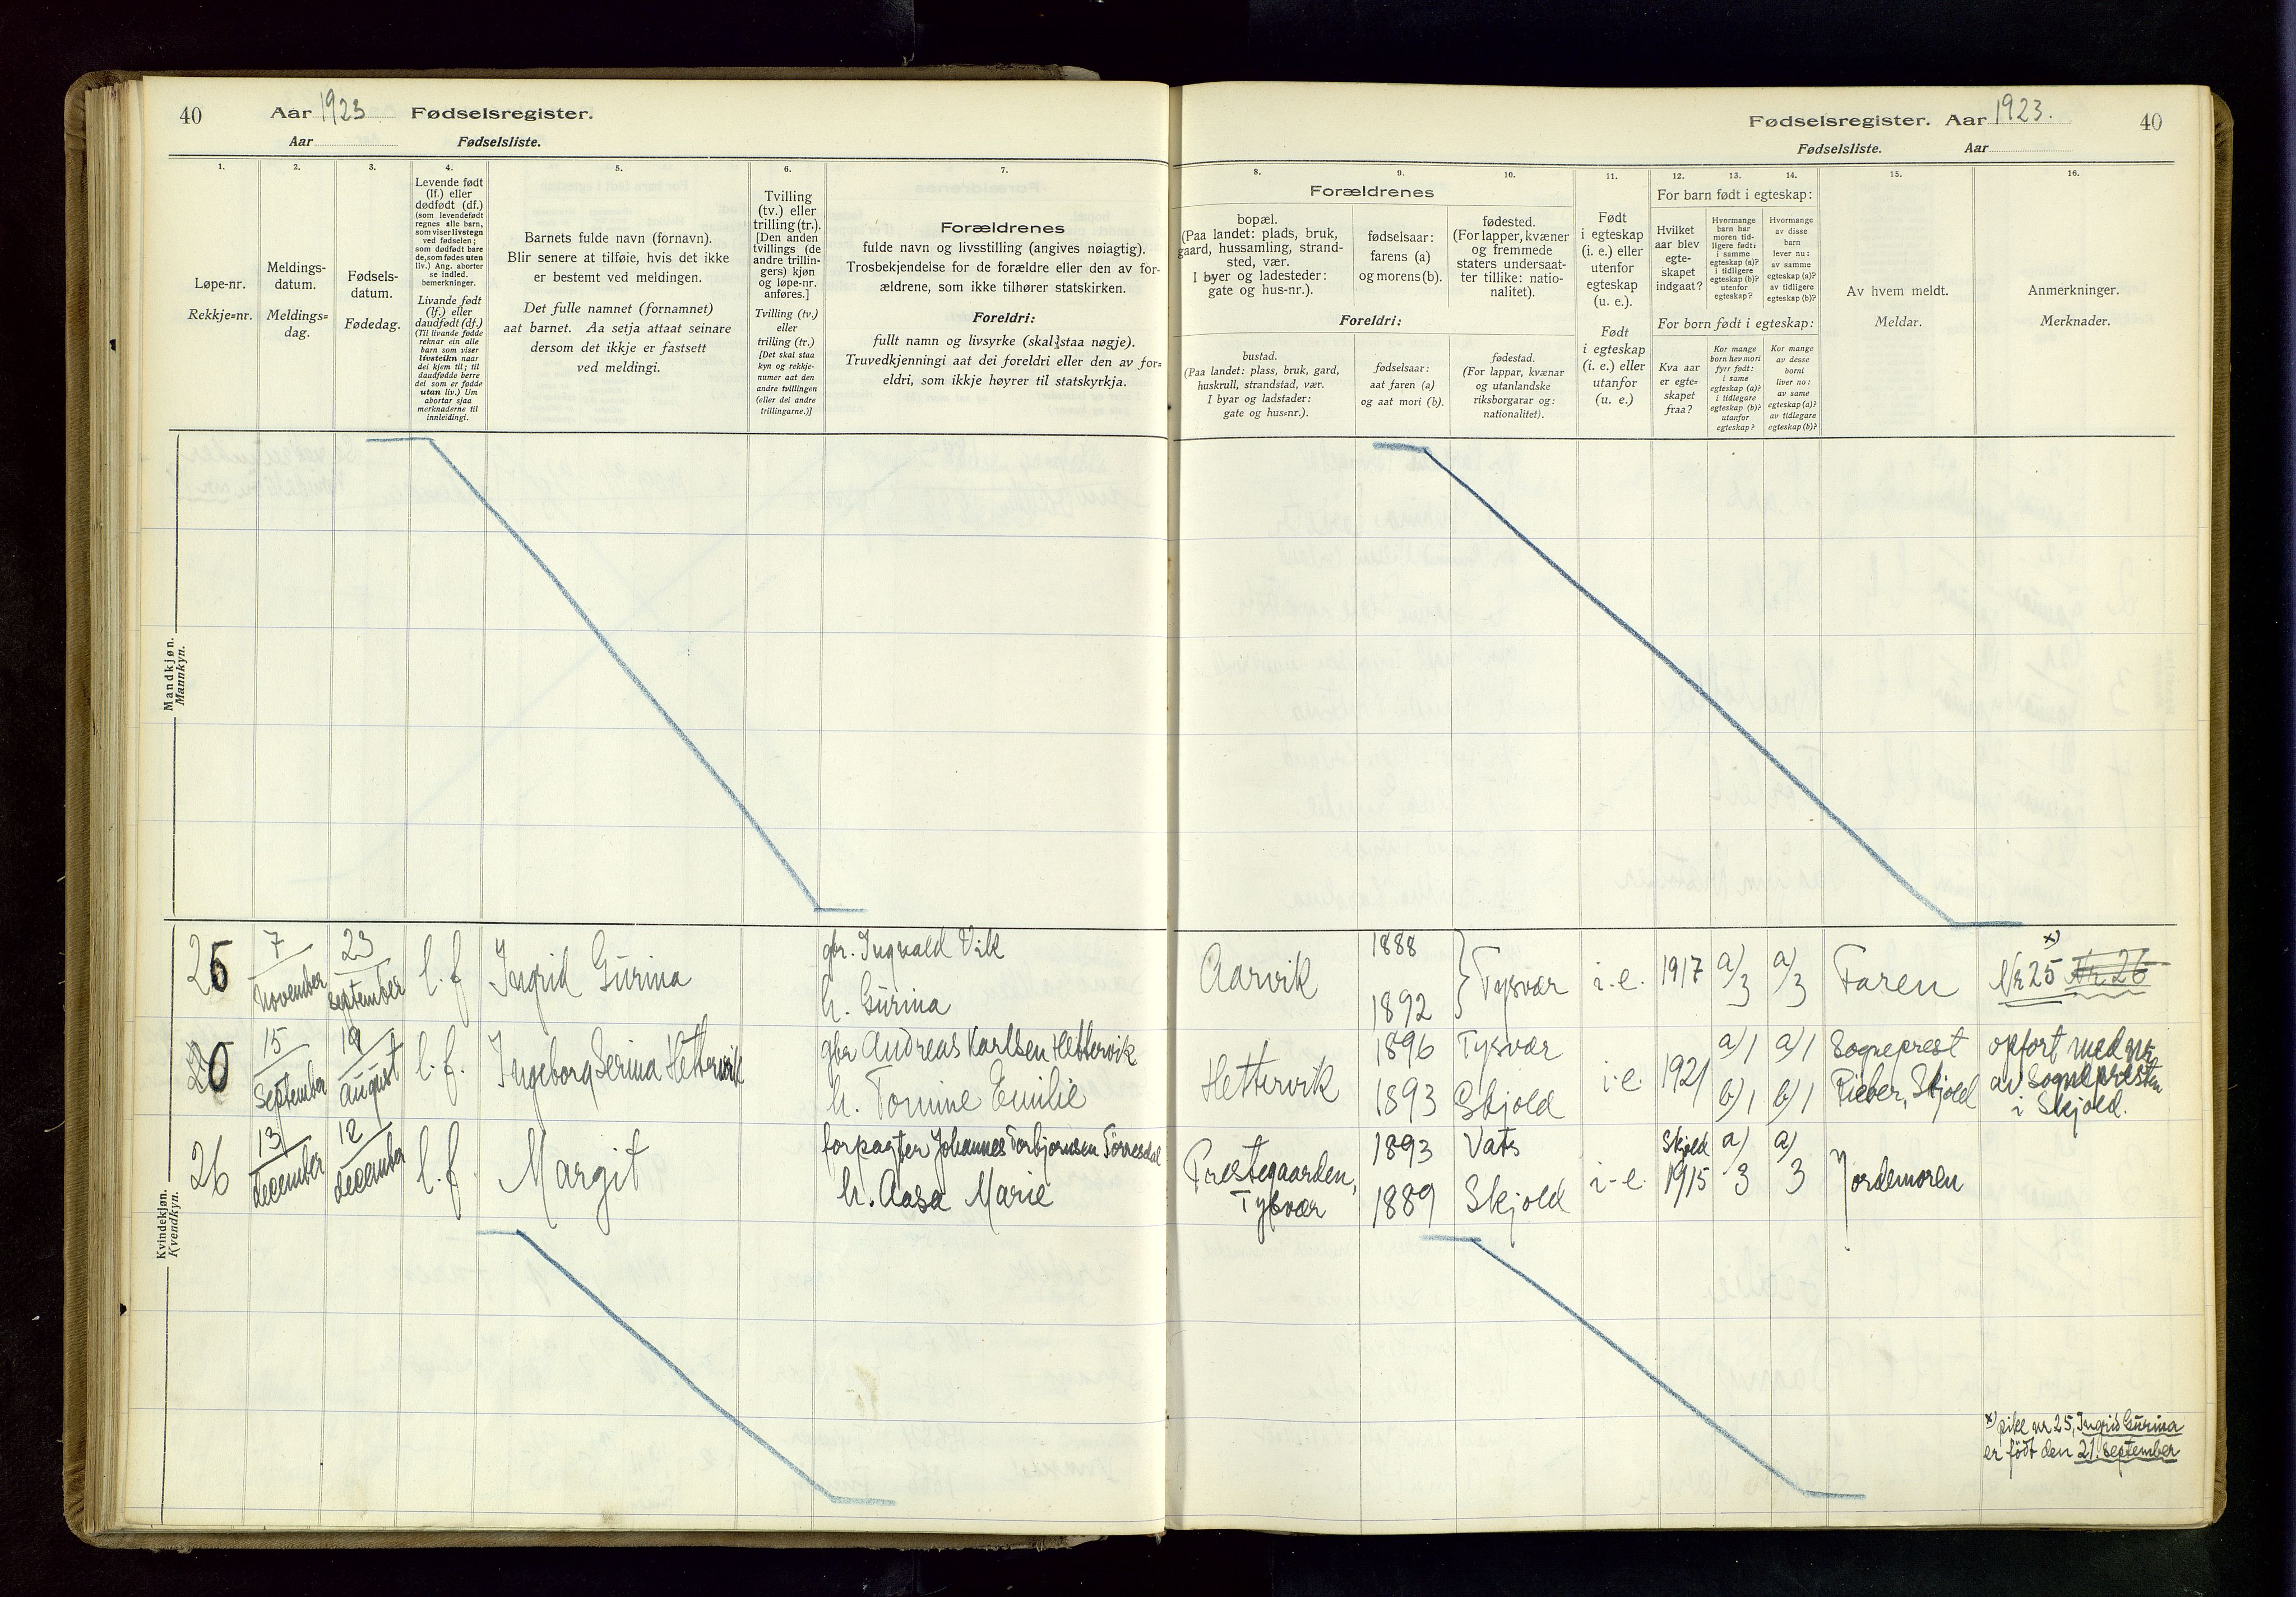 40
Aar 1923 Fødselsregister.
Aar Fødselsliste.
1.
Løpe-nr.
Rekkje=nr.
2.
Meldings-
datum.
Meldings=
dag.
3.
Fødsels-
datum.
Fødedag.
4.
Levende født
(lf.) eller
dødfødt (df.)
(som levendefødt
regnes alle barn,
som viser livstegn
ved fødselen;
som dødfødt bare
de, som fødes uten
liv.) Ang. aborter
se indled.
bemerkninger.
Livande født
(lf.) eller
daudfødt (df.)
(Til livande fødde
reknar ein alle
barn som viser
livsteikn naar
dei kjem til; til
daudfødde berre
dei som er fødde
utan liv.) Um
abortar sjaa
merknaderne til
innleidingi.
5.
Barnets fulde navn (fornavn).
Blir senere at tilføie, hvis det ikke
er bestemt ved meldingen.
Det fulle namnet (fornamnet)
aat barnet. Aa setja attaat seinare
dersom det ikkje er fastsett
ved meldingi.
6.
Tvilling
(tv.) eller
trilling (tr.).
[Den anden
tvillings (de
andre trillin-
gers) kjøn
og løpe-nr.
anføres.]
Tvilling (tv.)
eller
trilling (tr.)
[Det skal staa
kyn og rekkje-
numer aat den
andre tvillingen
(eller dei andre
trillingarne.)]
7.
Forældrenes
fulde navn og livsstilling (angives nøiagtig).
Trosbekjendelse for de forældre eller den av for-
ældrene, som ikke tilhører statskirken.
Foreldri:
fullt namn og livsyrke (skal staa nøgje).
Truvedkjenningi aat dei foreldri eller den av for=
eldri, som ikkje høyrer til statskyrkja.
Fødselsregister. Aar 1923.
40
Fødselsliste. Aar
Forældrenes
8.
bopæl.
(Paa landet: plads, bruk,
gaard, hussamling, strand-
sted, vær.
I byer og ladesteder:
gate og hus-nr.).
9.
fødselsaar:
farens (a)
og morens (b).
10.
fødested.
(For lapper, kvæner
og fremmede
staters undersaat-
ter tillike: natio-
nalitet).
Foreldri:
bustad.
(Paa landet: plass, bruk, gard,
huskrull, strandstad, vær.
I byar og ladstader:
gate og hus=nr.).
fødselsaar:
aat faren (a)
og aat mori (b).
fødestad.
(For lappar, kvænar
og utanlandske
riksborgarar og:
nationalitet).
11.
Født
i egteskap
(i. e.) eller
utenfor
egteskap
(u. e.).
Født
i egteskap
(i. e.) eller
utanfor
(u. e.)
For barn født i egteskap:
12.
Hvilket
aar blev
egte-
skapet
indgaat?
13.
Hvormange
barn har
moren tid-
ligere født:
i samme
egteskap (a)?
i tidligere
egteskap (b)?
utenfor
egteskap?
14.
Hvormange
av disse
barn
lever nu:
av samme
egteskap (a)?
av tidligere
egteskap (b)?
For born født i egteskap:
Kva aar
er egte=
skapet
fraa?
Kor mange
born hev mori
fyrr født:
i same
egteskap (a)?
i tidlegare
egteskap (b)?
utanfor
egteskap?
Kor mange
av desse
borni
liver no:
av same
egteskap (a)?
av tidlegare
egteskap (b)?
15.
Av hvem meldt.
Meldar.
16.
Anmerkninger.
Merknader.
Mandkjøn.
Mannkyn.
Kvindekjøn.
Kvendkyn.
25 7 november 23 september l.f Ingrid Gurina gbr. Ingvald Vik
h. Gurina
Aarvik 1888 1892 Tysvær i.e. 1917 a) 3 a) 3 Faren x) Nr 25 Nr. 26
20 15 september 19 august l.f. Ingeborg Serina Hettervik gbr Andreas Karlsen Hettervik
h. Tomine Emilie
Hettervik 1896 Tysvær 1893 Skjold i.e. 1921 a) 1 b) 1 a) 1 b) 1 Sogneprest
Rieber, Skjold
opført med nr
av Sognepresten
i Skjold.
26 13 december 12 december l.f. Margit forpagter Johannes Torbjørnsen Tørresdal
h. Aasa Marie
Prestegaarden,
Tysvær 1893 Vats 1889 Skjold i.e. Skjold 1915 a) 3 a) 3 Jordemoren
x) pike nr 25, Ingrid Gurina
er født den 21. september